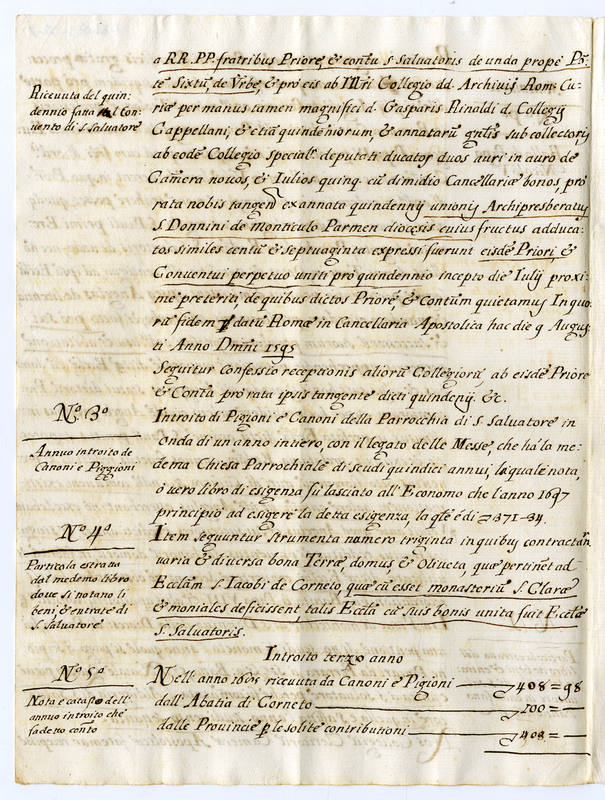 a RR. PP. fratribus Priore, & contu S. Salvatoris de unda propè Põ:
Ricevuta del quin:
dennio fatta nel Con:
uento di S. Saluatore
te Sixtũ, de Vrbe, & pro eis ab Illri Collegio dd. Archivij Rom: Cu:
riæ per manus tamen magnifici d. Gasparis Rinaldi d. Collegij
Cappellani, & etiã quindeniorum, & annatarũ gnlis subcollectoris
ab eodẽ Collegio speciałr deputati ducator duos auri in auro de
Camera novos, & Iulios quinq. cũ dimidio Cancellariæ bonos, prò
rata nobis tangen ex annata quindennij unionis Archipresberatus
S. Donnini de monticulo Parmen diocesis cuius fructus ad duca:
tos similes centũ & septuaginta expressi fuerunt eisdẽ Priori &
Conventui perpetuo uniti prò quindennio incepto die Iulij proxi:
mè preteriti, de quibus dictos Priorẽ, & Contum quietamus In quo:
rũ fidem datũ Romæ in Cancellaria Apostolica hac die 9 Augus:
ti Anno Dmni 1595
Sequitur Confessio receptionis aliorũ Collegiorũ, ab eisdẽ Priore
& Contu prò rata ipsis tangente dicti quindenij. &c.
N.º 3º
Annuo introito de
Canoni e Piggioni
Introito di Pigioni e Canoni della Parrocchia di S. Salvatore in
Onda di un anno intiero, con il legato delle Messe, che há la me:
dema Chiesa Parrochiale di scudi quindici annui, la quale nota,
ò vero libro di esigenza fù lasciato all' Economo che l'anno 1697
principiò ad esigere la detta esigenza, la qle è di 371-84.
N.º 4º
Particola estratta
dal medemo libro
doue si notano li
beni, & entrate di
S. Saluatore
Item sequuntur Strumenta numero triginta in quibus contractan.
varia & diversa bona Terræ, domus, & Oliveta, quæ pertinẽt ad
Ecclãm S. Iacobi de Corneto, quæ cũ esset monasteriũ S. Claræ
& moniales deficissent, talis Ecclã cũ suis bonis unita fuit Ecclæ
S. Salvatoris.
Introito terzo anno
N.º 5º
Nota e catasto dell'
annuo introito che
fa detto conto
Nell' anno 1605 ricevuta da Canoni e Pigioni 408=98
dall' Abatia di Corneto 100=
dalle Provincie p le solite contributioni 408=